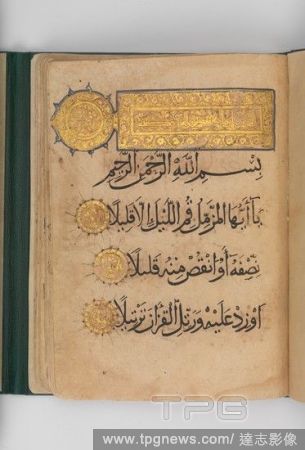 بسم الله الرحمن الرحيم
يا أيها المزمل قم الليل إلا قليلا
نصفه أو انقص منه قليلا
أو زد عليه ورتل القرآن ترتيلا
TPG
www.tpgnews.com/ 達志影像